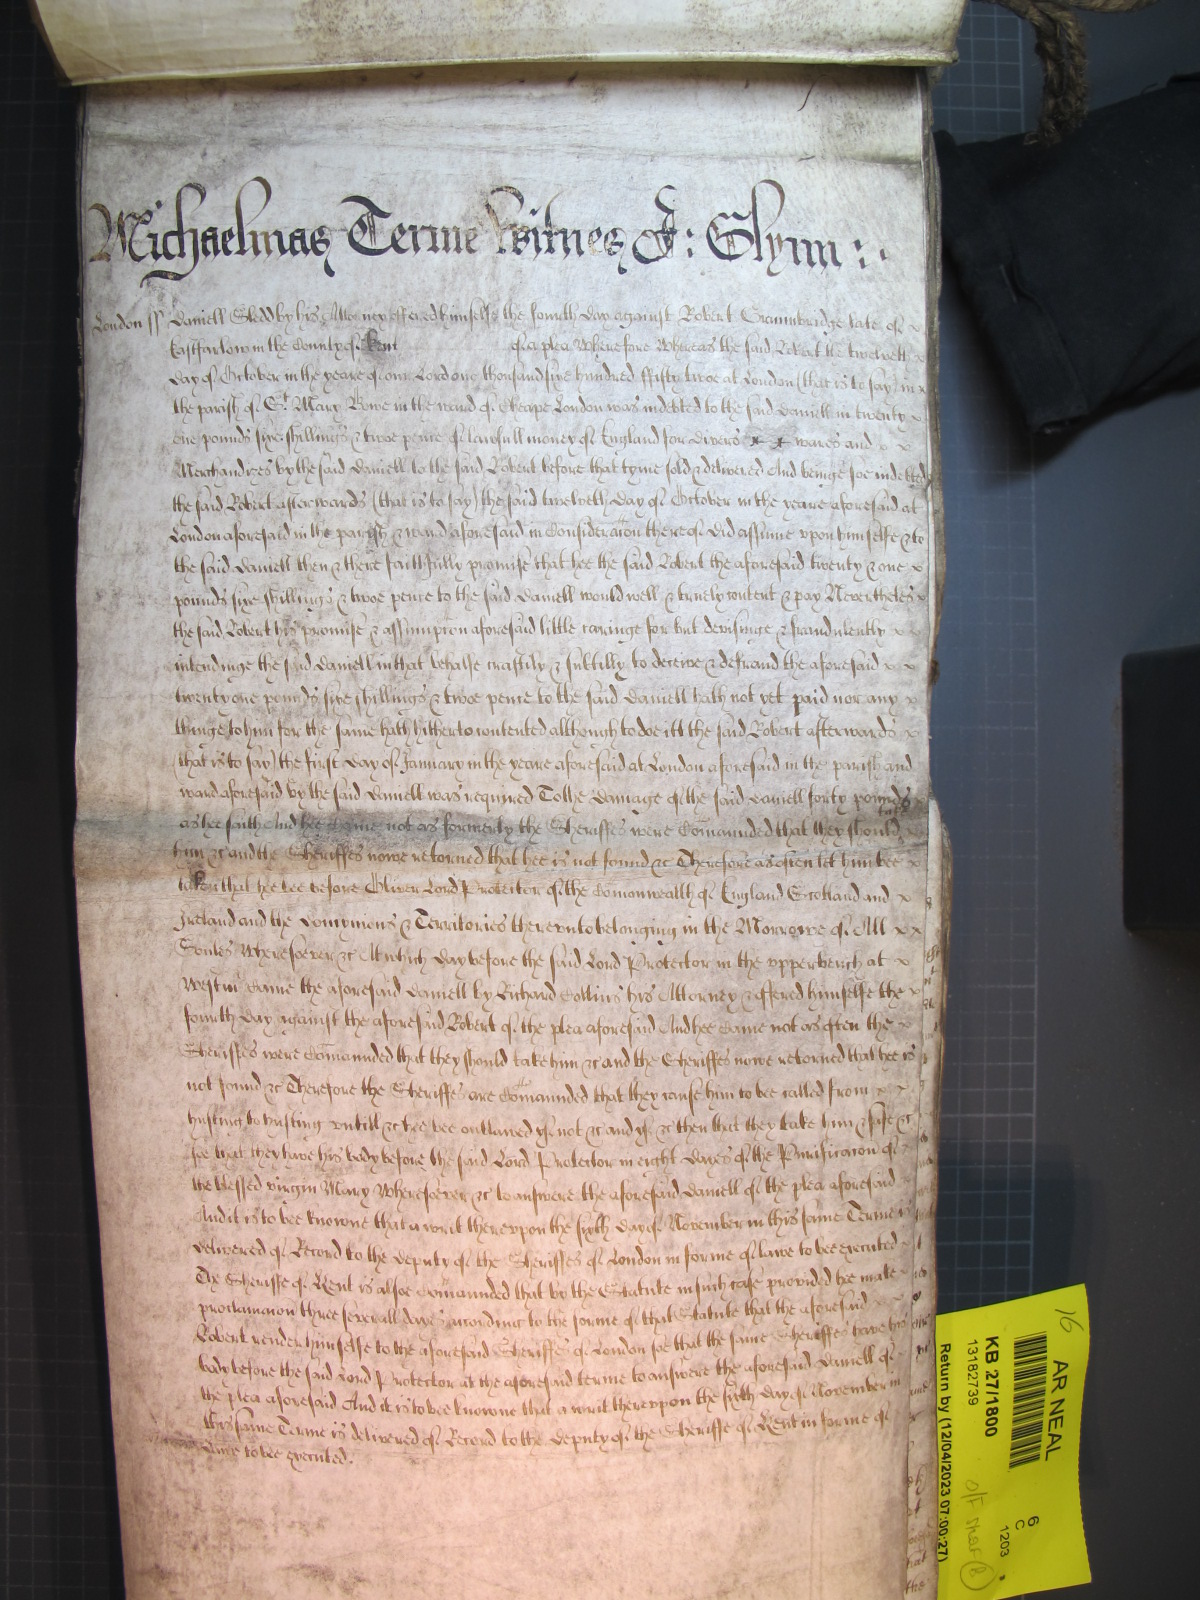 Michaelmas Terme Witnes J: Glynn :.
London ss Daniell Gledd by his Attorney offered himselfe the fourth day against Robert late of x
Eastfarlow in the County of Kent of a plea Wherefore Whereas the said Robert the twelveth x
day of October in the yeare of our Lord one thousand sixe hundred fifty twoe at London (that is to say) in x
the parish of St Mary Bowe in the ward of Cheape London was indebted to the said Daniell in twenty x
one pounds sixe shillings & twoe pence of lawfull money of England for divers x x wares and x x
Merchandizes by the said Daniell to the said Robert before that tyme sold & delivered And beinge soe indebted
the said Robert afterwards (that is to say) the said twelveth day of October in the yeare aforesaid at
London aforesaid in the parish & ward aforesaid in Consideracion thereof did assume upon himselfe & to
the said Daniell then & there faithfully promise that hee the said Robert the aforesaid twenty & one x
pounds sixe shillings & twoe pence to the said Daniell would well & truely content & pay Nevertheles x
the said Robert his promise & assumpcion aforesaid little caringe for but devisinge & fraudulently x x
intendinge the said Daniell in that behalfe craftily & subtilly to deceive & defraud the aforesaid x x
twenty one pounds sixe shillings & twoe pence to the said Daniell hath not yet paid nor any x
thinge to him for the same hath hitherto contented although to doe itt the said Robert afterwards x
(that is to say) the first day of January in the yeare aforesaid at London aforesaid in the parish and
ward aforesaid by the said Daniell was required To the damage of the said Daniell forty pounds
as hee saith And hee Came not as formerly the Sheriffes were Comaunded that they should take
him &c and the Sheriffes nowe retorned that hee is not found &c Therefore as often let him bee x
taken that hee bee before Oliver Lord Protector of the Comonwealth of England Scotland and x
Ireland and the Dominions & Territories thereunto belonging in the Morrowe of All x x
Soules Wheresoever &c At which day before the said Lord Protector in the upperbench at x
Westm Came the aforesaid Daniell by Richard Collins his Attorney & offered himselfe the x
fourth day against the aforesaid Robert of the plea aforesaid And hee Came not as often the x
Sheriffes were Comaunded that they should take him &c and the Sheriffes nowe retorned that hee is
not found &c Therefore the Sheriffes are Comaunded that they cause him to bee called from x x
husting to husting untill &c hee bee outlawed if not &c and if &c then that they take him & safe &c
soe that they have his body before the said Lord Protector in eight dayes of the Purificacion of
the blessed virgin Mary Wheresoever &c to answere the aforesaid Daniell of the plea aforesaid
And it is to bee knowne that a writ thereupon the sixth day of November in this same Terme is
delivered of Record to the deputy of the Sheriffes of London in forme of lawe to bee executed x
The Sheriffe of Kent is alsoe Comaunded that by the Statute in such case provided he make
proclamacion three severall dayes according to the forme of that Statute that the aforesaid x x
Robert render himselfe to the aforesaid Sheriffes of London soe that the same Sheriffes have his
body before the said Lord Protector at the aforesaid terme to answere the aforesaid Daniell of
the plea aforesaid And it is to bee knowne that a writ thereupon the sixth day of November in
this same Terme is delivered of Record to the deputy of the Sheriffe of Kent in forme of
lawe to bee executed.
16
AR NEAL
KB 27/1800
13182739
Return by (12/04/2023 07:00:27)
6
C
1203
O/F Shelf B